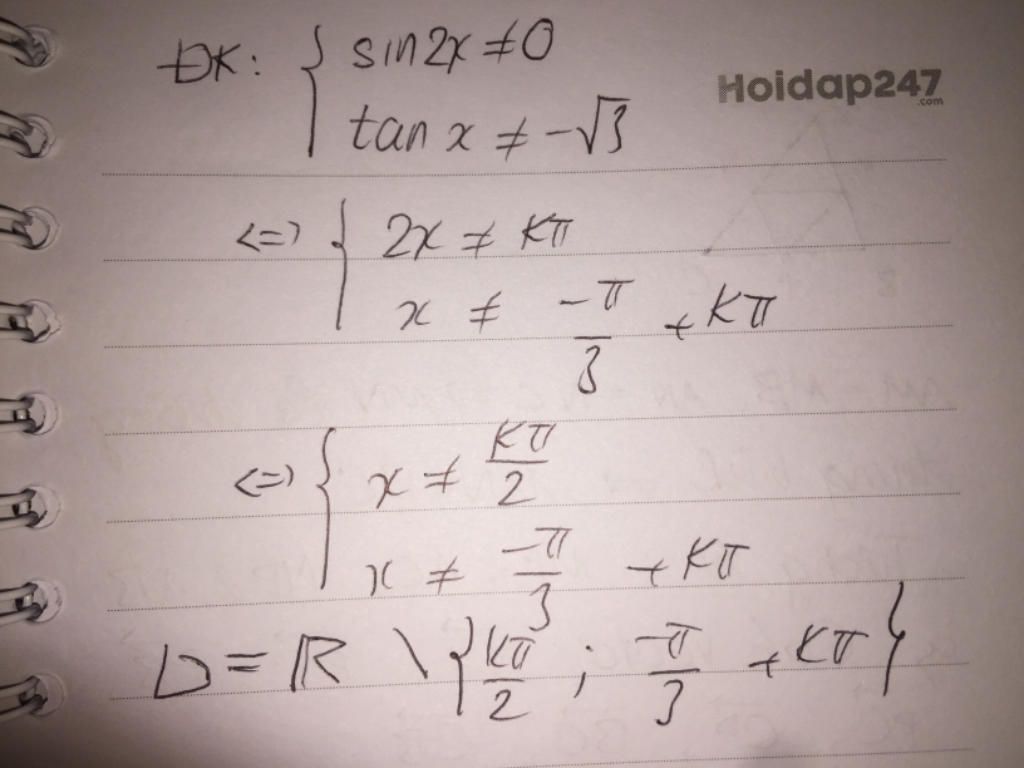 ĐK: { sin2x ≠ 0
Hoidap247
.com
tan x ≠ -√3
<=> { 2x ≠ kπ
x ≠ -π/3 + kπ
<=> { x ≠ kπ/2
x ≠ -π/3 + kπ
D = R \ { kπ/2 ; -π/3 + kπ }